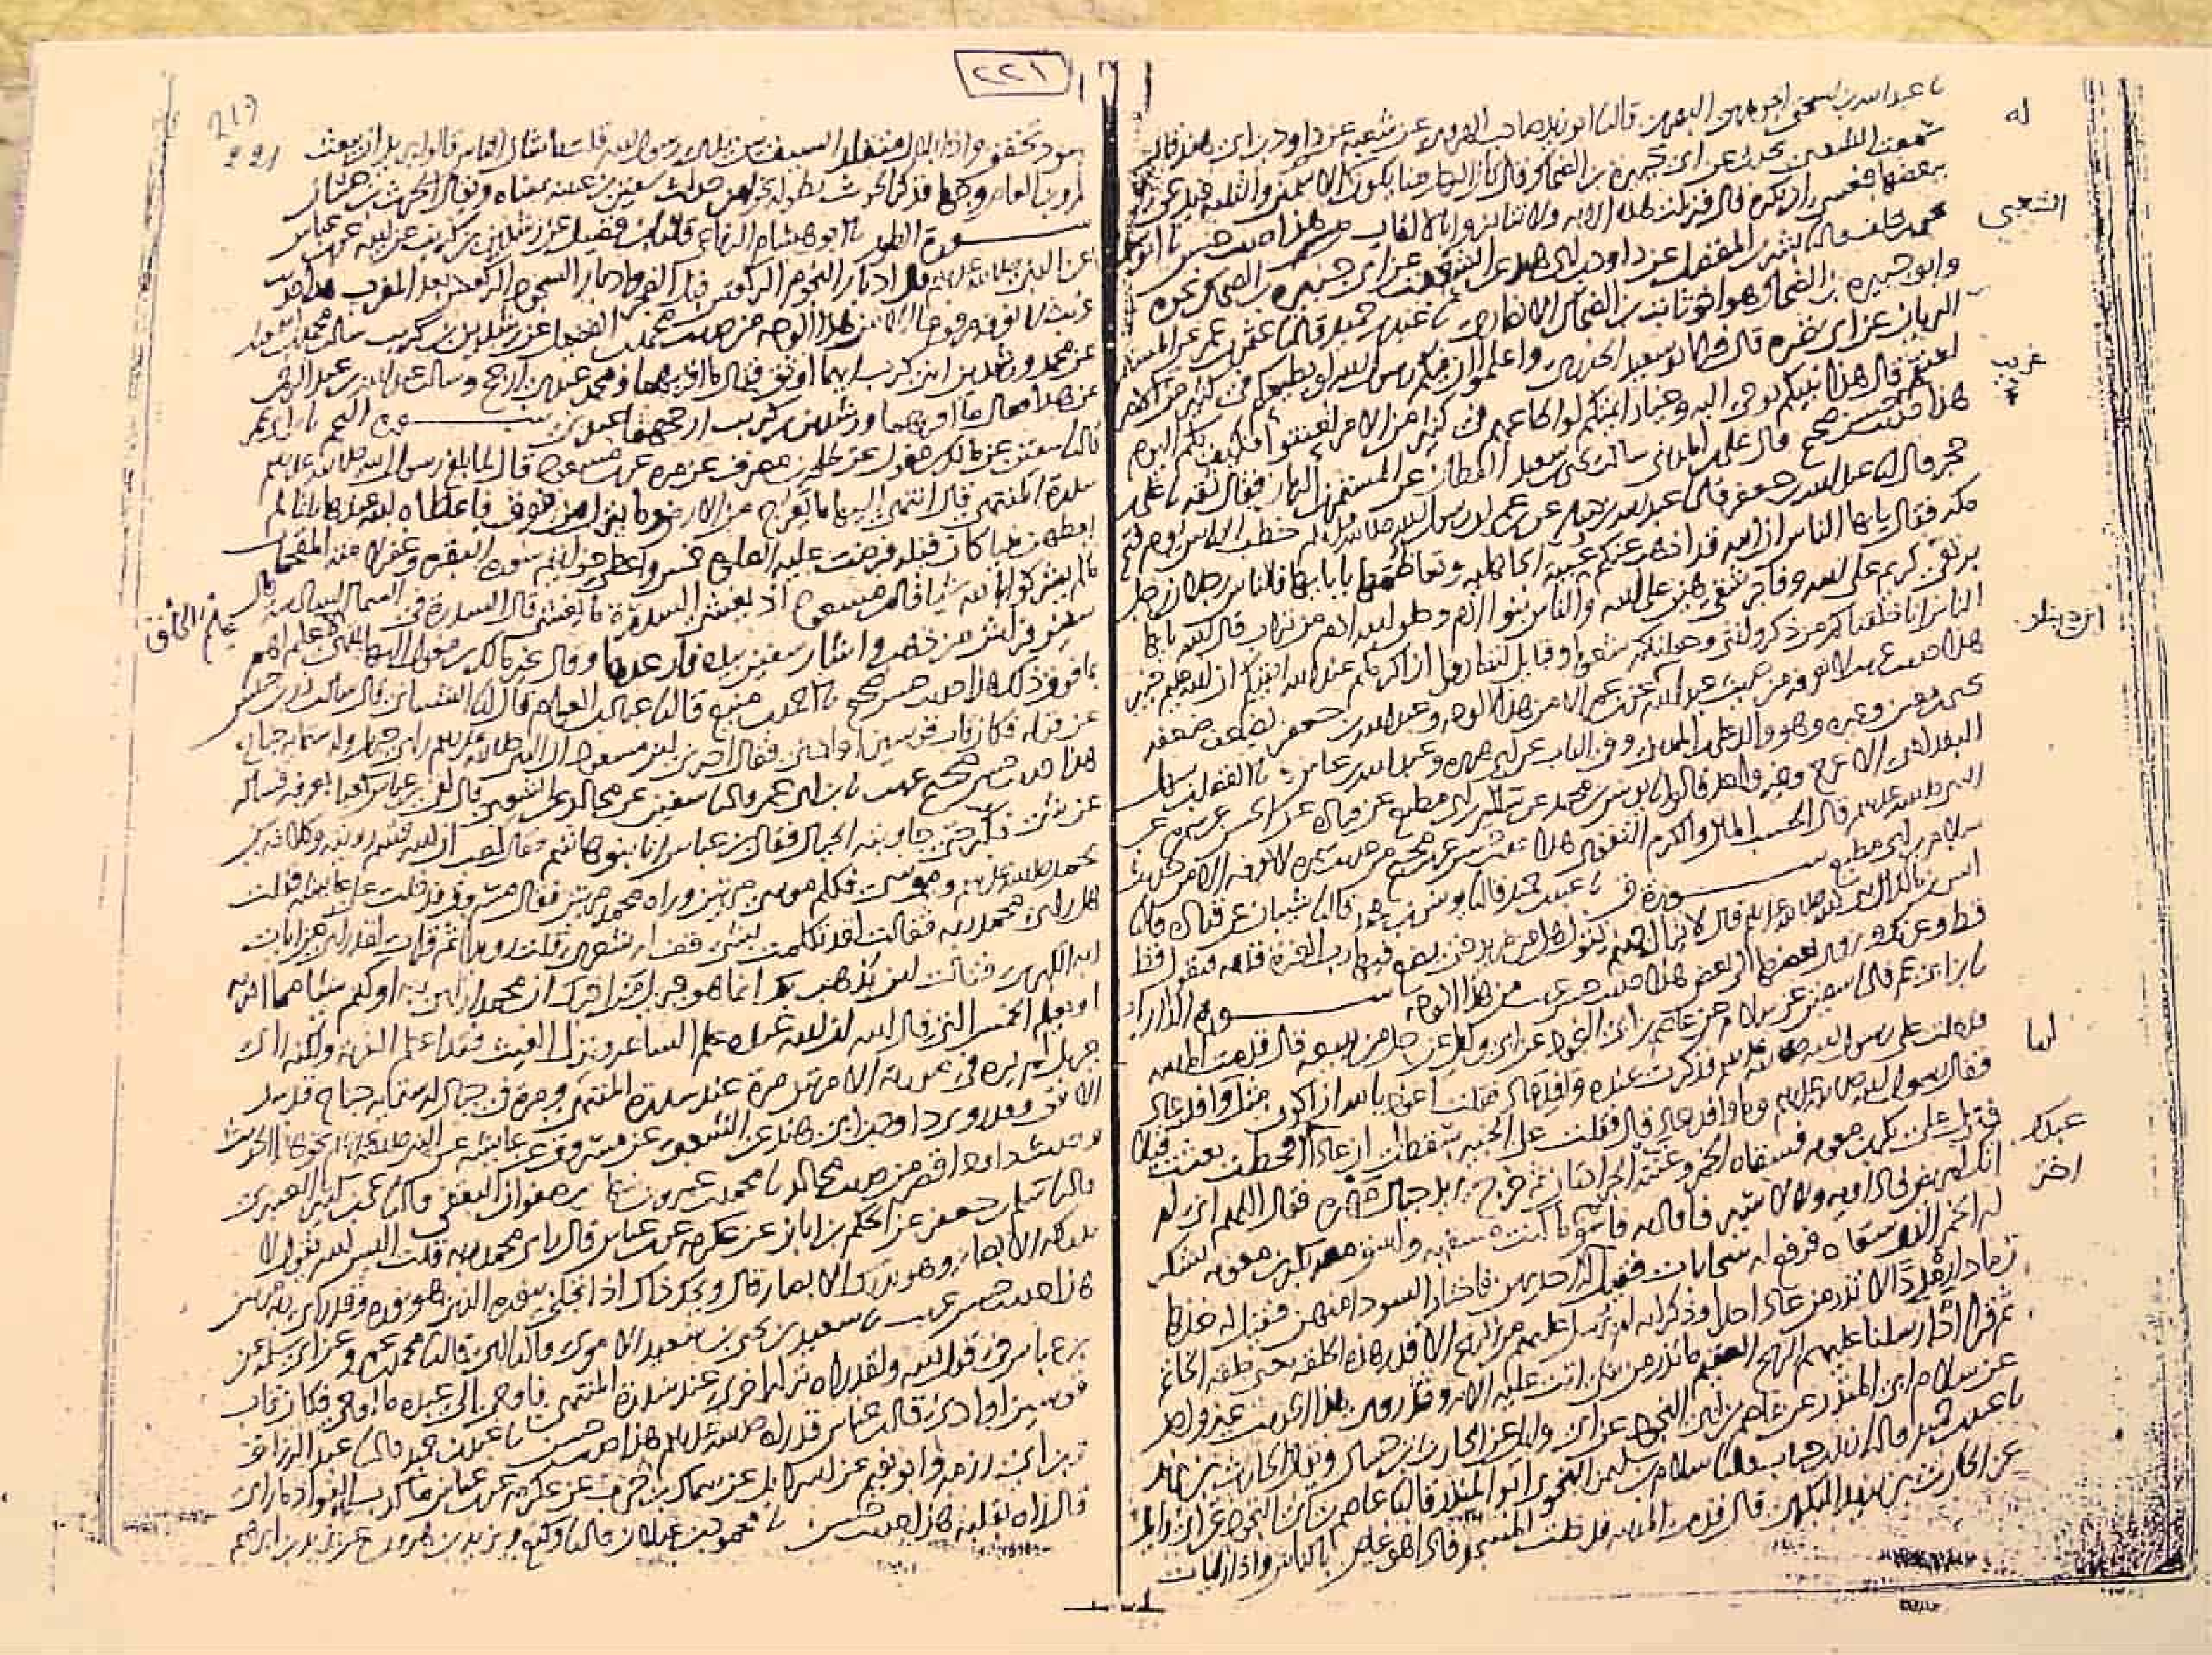 نا عبد الله بن اسحق الجوهري البصري قال نا ابو زيد صاحب الهروي عن شعبة عن داود بن ابي هند قال
سمعت الشعبي يحدث عن ابي جبيرة بن الضحاك قال كان الرجل منا يكون له الاسمين والثلثة فيدعى
ببعضها فعسى ان يكره قال فنزلت هذه الاية ولا تنابزوا بالالقاب هذا حديث حسن نا ابو سلمة
بشر بن المفضل عن داود بن ابي هند عن الشعبي عن ابي جبيرة بن الضحاك نحوه
وابو جبيرة بن الضحاك هو اخو ثابت بن الضحاك الانصاري نا عبد بن حميد قال نا عثمن بن عمر عن المستمر
الريان عن ابي نضرة قال قرا ابو سعيد الخدري واعلموا ان فيكم رسول الله لو يطيعكم في كثير من الامر
لعنتم قال هذا نبيكم يوحى اليه وخيار ائمتكم لو اطاعهم في كثير من الامر لعنتوا فكيف بكم اليوم
هذا حديث حسن صحيح قال علي بن المديني سالت يحيى بن سعيد القطان عن المستمر بن الريان فقال ثقة نا علي
حجر قال نا عبد الله بن جعفر قال نا عبد الله بن دينار عن ابن عمر ان رسول الله صلى الله عليه وسلم خطب الناس يوم فتح
مكة فقال يا ايها الناس ان الله قد اذهب عنكم عبية الجاهلية وتعاظمها بابايها فالناس رجلان رجل
بر تقي كريم على الله وفاجر شقي هين على الله والناس بنو ادم وخلق الله ادم من تراب قال الله يا ايها
الناس انا خلقناكم من ذكر وانثى وجعلناكم شعوبا وقبايل لتعارفوا ان اكرمكم عند الله اتقيكم ان الله عليم خبير
هذا حديث غريب لا نعرفه من حديث عبد الله بن دينار عن ابن عمر الا من هذا الوجه وعبد الله بن جعفر يضعف ضعفه
يحيى بن معين وغيره وهو والد علي بن المديني وفي الباب عن ابي هريرة وعبد الله بن عباس نا الفضل بن سهل
البغدادي الاعرج وغير واحد قالوا نا يونس بن محمد عن سلام بن ابي مطيع عن قتادة عن الحسن عن سمرة عن
النبي صلى الله عليه وسلم قال الحسب المال والكرم التقوى هذا حديث حسن غريب صحيح من حديث سمرة لا نعرفه الا من حديث
سلام بن ابي مطيع سورة ق نا عبد بن حميد قال نا يونس بن محمد قال نا شيبان عن قتادة قال نا
انس بن مالك ان نبي الله صلى الله عليه وسلم قال لا تزال جهنم تقول هل من مزيد حتى يضع فيها رب العزة قدمه فتقول قط
قط وعزتك ويزوى بعضها الى بعض هذا حديث حسن غريب من هذا الوجه سورة الذاريات
نا ابن ابي عمر قال نا سفين عن سلام عن عاصم بن ابي النجود عن ابي وايل عن رجل من ربيعة قال قدمت المدينة
فدخلت على رسول الله صلى الله عليه وسلم فذكرت عنده وافد عاد فقلت اعوذ بالله ان اكون مثل وافد عاد
فقال رسول الله صلى الله عليه وسلم وما وافد عاد قال فقلت على الخبير سقطت ان عادا لما اقحطت بعثت قيلا
فنزل على بكر بن معوية فسقاه الخمر وغنته الجرادتان ثم خرج يريد جبال مهرة فقال اللهم اني لم
اتك لمريض فاداويه ولا لاسير فافاديه فاسق عبدك ما كنت مسقيه واسق معه بكر بن معوية يشكر
له الخمر الذي سقاه فرفع له سحابات فقيل له اختر احديهن فاختار السودا منهن فقيل له خذها
رمادا رمددا لا تذر من عاد احدا وذكر انه لم يرسل عليهم من الريح الا قدر هذه الحلقة يعني حلقة الخاتم
ثم قرا اذ ارسلنا عليهم الريح العقيم ما تذر من شي اتت عليه الاية وقد روى هذا الحديث غير واحد
عن سلام ابي المنذر عن عاصم بن ابي النجود عن ابي وايل عن الحارث بن حسان ويقال الحارث بن يزيد
نا عبد بن حميد قال نا زيد بن حباب قال نا سلام بن سليمن النحوي ابو المنذر قال نا عاصم بن ابي النجود عن ابي وايل
عن الحارث بن يزيد البكري قال قدمت المدينة فدخلت المسجد فاذا هو غاص بالناس واذا رايات
له
الشعبي
غريب
ابن دينار
لما
عبدك
اختر
٢٢١
219
221
سود تخفق واذا بلال متقلد السيف بين يدي رسول الله قلت ما شان الناس قالوا يريد ان يبعث
عمرو بن العاص وجها فذكر الحديث بطوله نحوا من حديث سفين بن عيينة بمعناه ويقال الحرث بن حسان
سورة الطور نا ابو هشام الرفاعي قال نا ابن فضيل عن رشدين بن كريب عن ابيه عن ابن عباس
عن النبي صلى الله عليه وسلم قال ادبار النجوم الركعتين قبل الفجر وادبار السجود الركعتين بعد المغرب هذا حديث
غريب لا نعرفه مرفوعا الا من هذا الوجه من حديث محمد بن الفضيل عن رشدين بن كريب سالت محمد بن اسمعيل
عن محمد ورشدين ابني كريب ايهما اوثق فقال ما اقربهما ومحمد عندي ارجح وسالت عبد الله بن عبد الرحمن
عن هذا فقال ما اقربهما ورشدين بن كريب ارجحهما عندي سورة النجم نا ابن ابي عمر
قال نا سفين عن مالك بن مغول عن طلحة بن مصرف عن مرة عن ابن مسعود قال لما بلغ رسول الله صلى الله عليه وسلم
سدرة المنتهى قال انتهى اليها ما يعرج من الارض وما ينزل من فوق فاعطاه الله عندها ثلثا لم
يعطهن نبيا كان قبله فرضت عليه الصلوة خمس واعطي خواتيم سورة البقرة وغفر لامته المقحمات
ما لم يشركوا بالله شيا قال ابن مسعود اذ يغشى السدرة ما يغشى قال السدرة في السما السادسة قال
سفين فراش من ذهب واشار سفين بيده فارعدها وقال غير مالك بن مغول اليها ينتهي علم الخلق لا علم لهم
بما فوق ذلك هذا حديث حسن صحيح نا احمد بن منيع قال نا عباد بن العوام قال نا الشيباني قال سالت زر بن حبيش
عن قوله فكان قاب قوسين او ادنى فقال اخبرني ابن مسعود ان النبي صلى الله عليه وسلم راى جبريل وله ستماية جناح
هذا حديث حسن صحيح غريب نا ابن ابي عمر قال نا سفين عن مجالد عن الشعبي قال لقي ابن عباس كعبا بعرفة فساله
عن شي فكبر حتى جاوبته الجبال فقال ابن عباس انا بنو هاشم فقال كعب ان الله قسم رويته وكلامه بين
محمد صلى الله عليه وسلم وموسى فكلم موسى مرتين وراه محمد مرتين فقال مسروق فدخلت على عايشة فقلت
هل راى محمد ربه فقالت لقد تكلمت بشي قف له شعري قلت رويدا ثم قرات لقد راى من ايات
ربه الكبرى فقالت اين يذهب بك انما هو جبريل من اخبرك ان محمدا راى ربه او كتم شيا مما امر به
او يعلم الخمس التي قال الله ان الله عنده علم الساعة وينزل الغيث فقد اعظم الفرية ولكنه راى
جبريل لم يره في صورته الا مرتين مرة عند سدرة المنتهى ومرة في جياد له ستماية جناح قد سد
الافق وقد روى داود بن ابي هند عن الشعبي عن مسروق عن عايشة عن النبي صلى الله عليه وسلم نحو هذا الحديث
وحديث داود اقصر من حديث مجالد نا محمد بن عمرو بن نبهان بن صفوان الثقفي قال نا يحيى بن كثير العنبري
قال نا سلم بن جعفر عن الحكم بن ابان عن عكرمة عن ابن عباس قال راى محمد ربه قلت اليس الله يقول لا
تدركه الابصار وهو يدرك الابصار قال ويحك ذاك اذا تجلى بنوره الذي هو نوره وقد راى ربه مرتين
هذا حديث حسن غريب نا سعيد بن يحيى بن سعيد الاموي قال نا ابي قال نا محمد بن عمرو عن ابي سلمة عن
ابن عباس في قول الله ولقد راه نزلة اخرى عند سدرة المنتهى فاوحى الى عبده ما اوحى فكان قاب
قوسين او ادنى قال ابن عباس قد راه صلى الله عليه وسلم هذا حديث حسن نا عبد بن حميد قال نا عبد الرزاق
وابن ابي رزمة وابو نعيم عن اسرائيل عن سماك بن حرب عن عكرمة عن ابن عباس ما كذب الفواد ما راى
قال راه بقلبه هذا حديث حسن نا محمود بن غيلان قال نا وكيع ويزيد بن هرون عن يزيد بن ابرهيم
علم الخلق